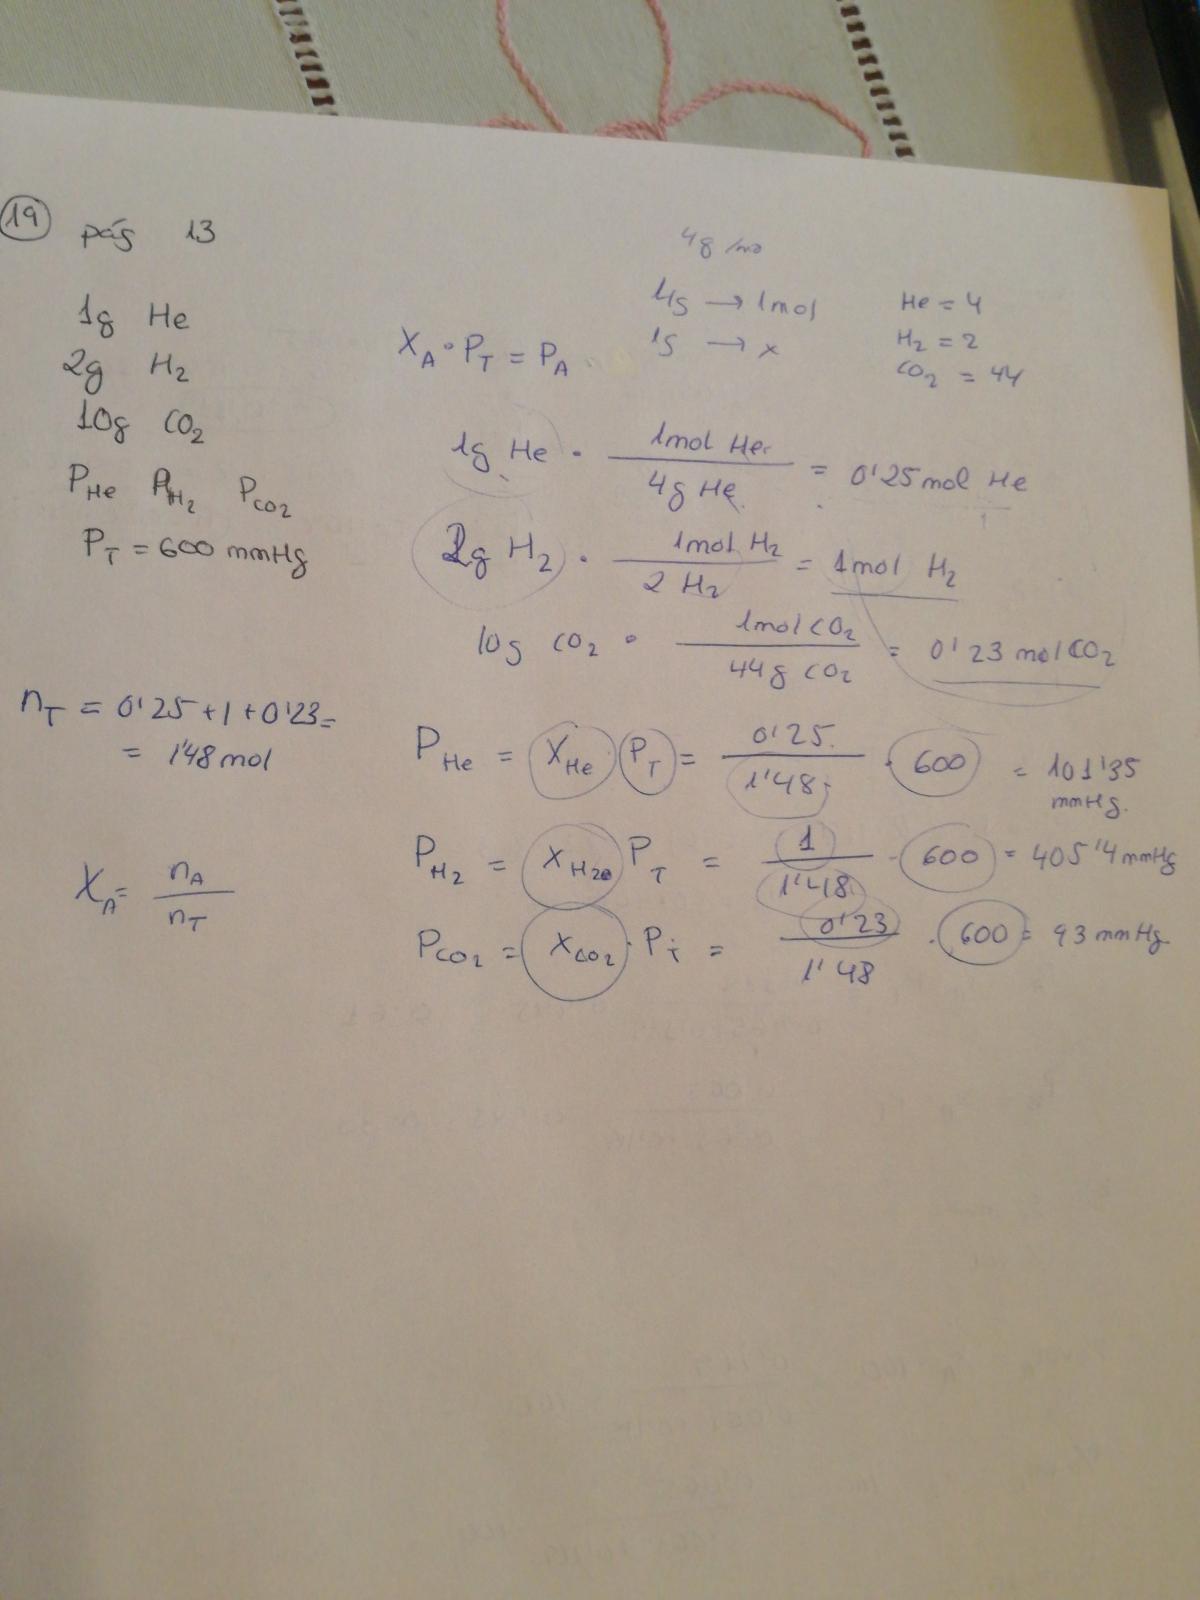 19 pág 13
1g He
2g H2
10g CO2
PHe PH2 PCO2
PT = 600 mmHg
4g /mo
4g → 1mol
1g → x
He = 4
H2 = 2
CO2 = 44
XA · PT = PA
1g He · 1mol He / 4g He = 0'25 mol He
2g H2 · 1mol H2 / 2 H2 = 1mol H2
10g CO2 · 1mol CO2 / 44g CO2 = 0'23 mol CO2
nT = 0'25 + 1 + 0'23 =
= 1'48 mol
PHe = XHe PT = 0'25 / 1'48 · 600 = 101'35 mmHg.
XA = nA / nT
PH2 = XH2 PT = 1 / 1'48 · 600 = 405'4 mmHg
PCO2 = XCO2 · PT = 0'23 / 1'48 · 600 = 93 mmHg